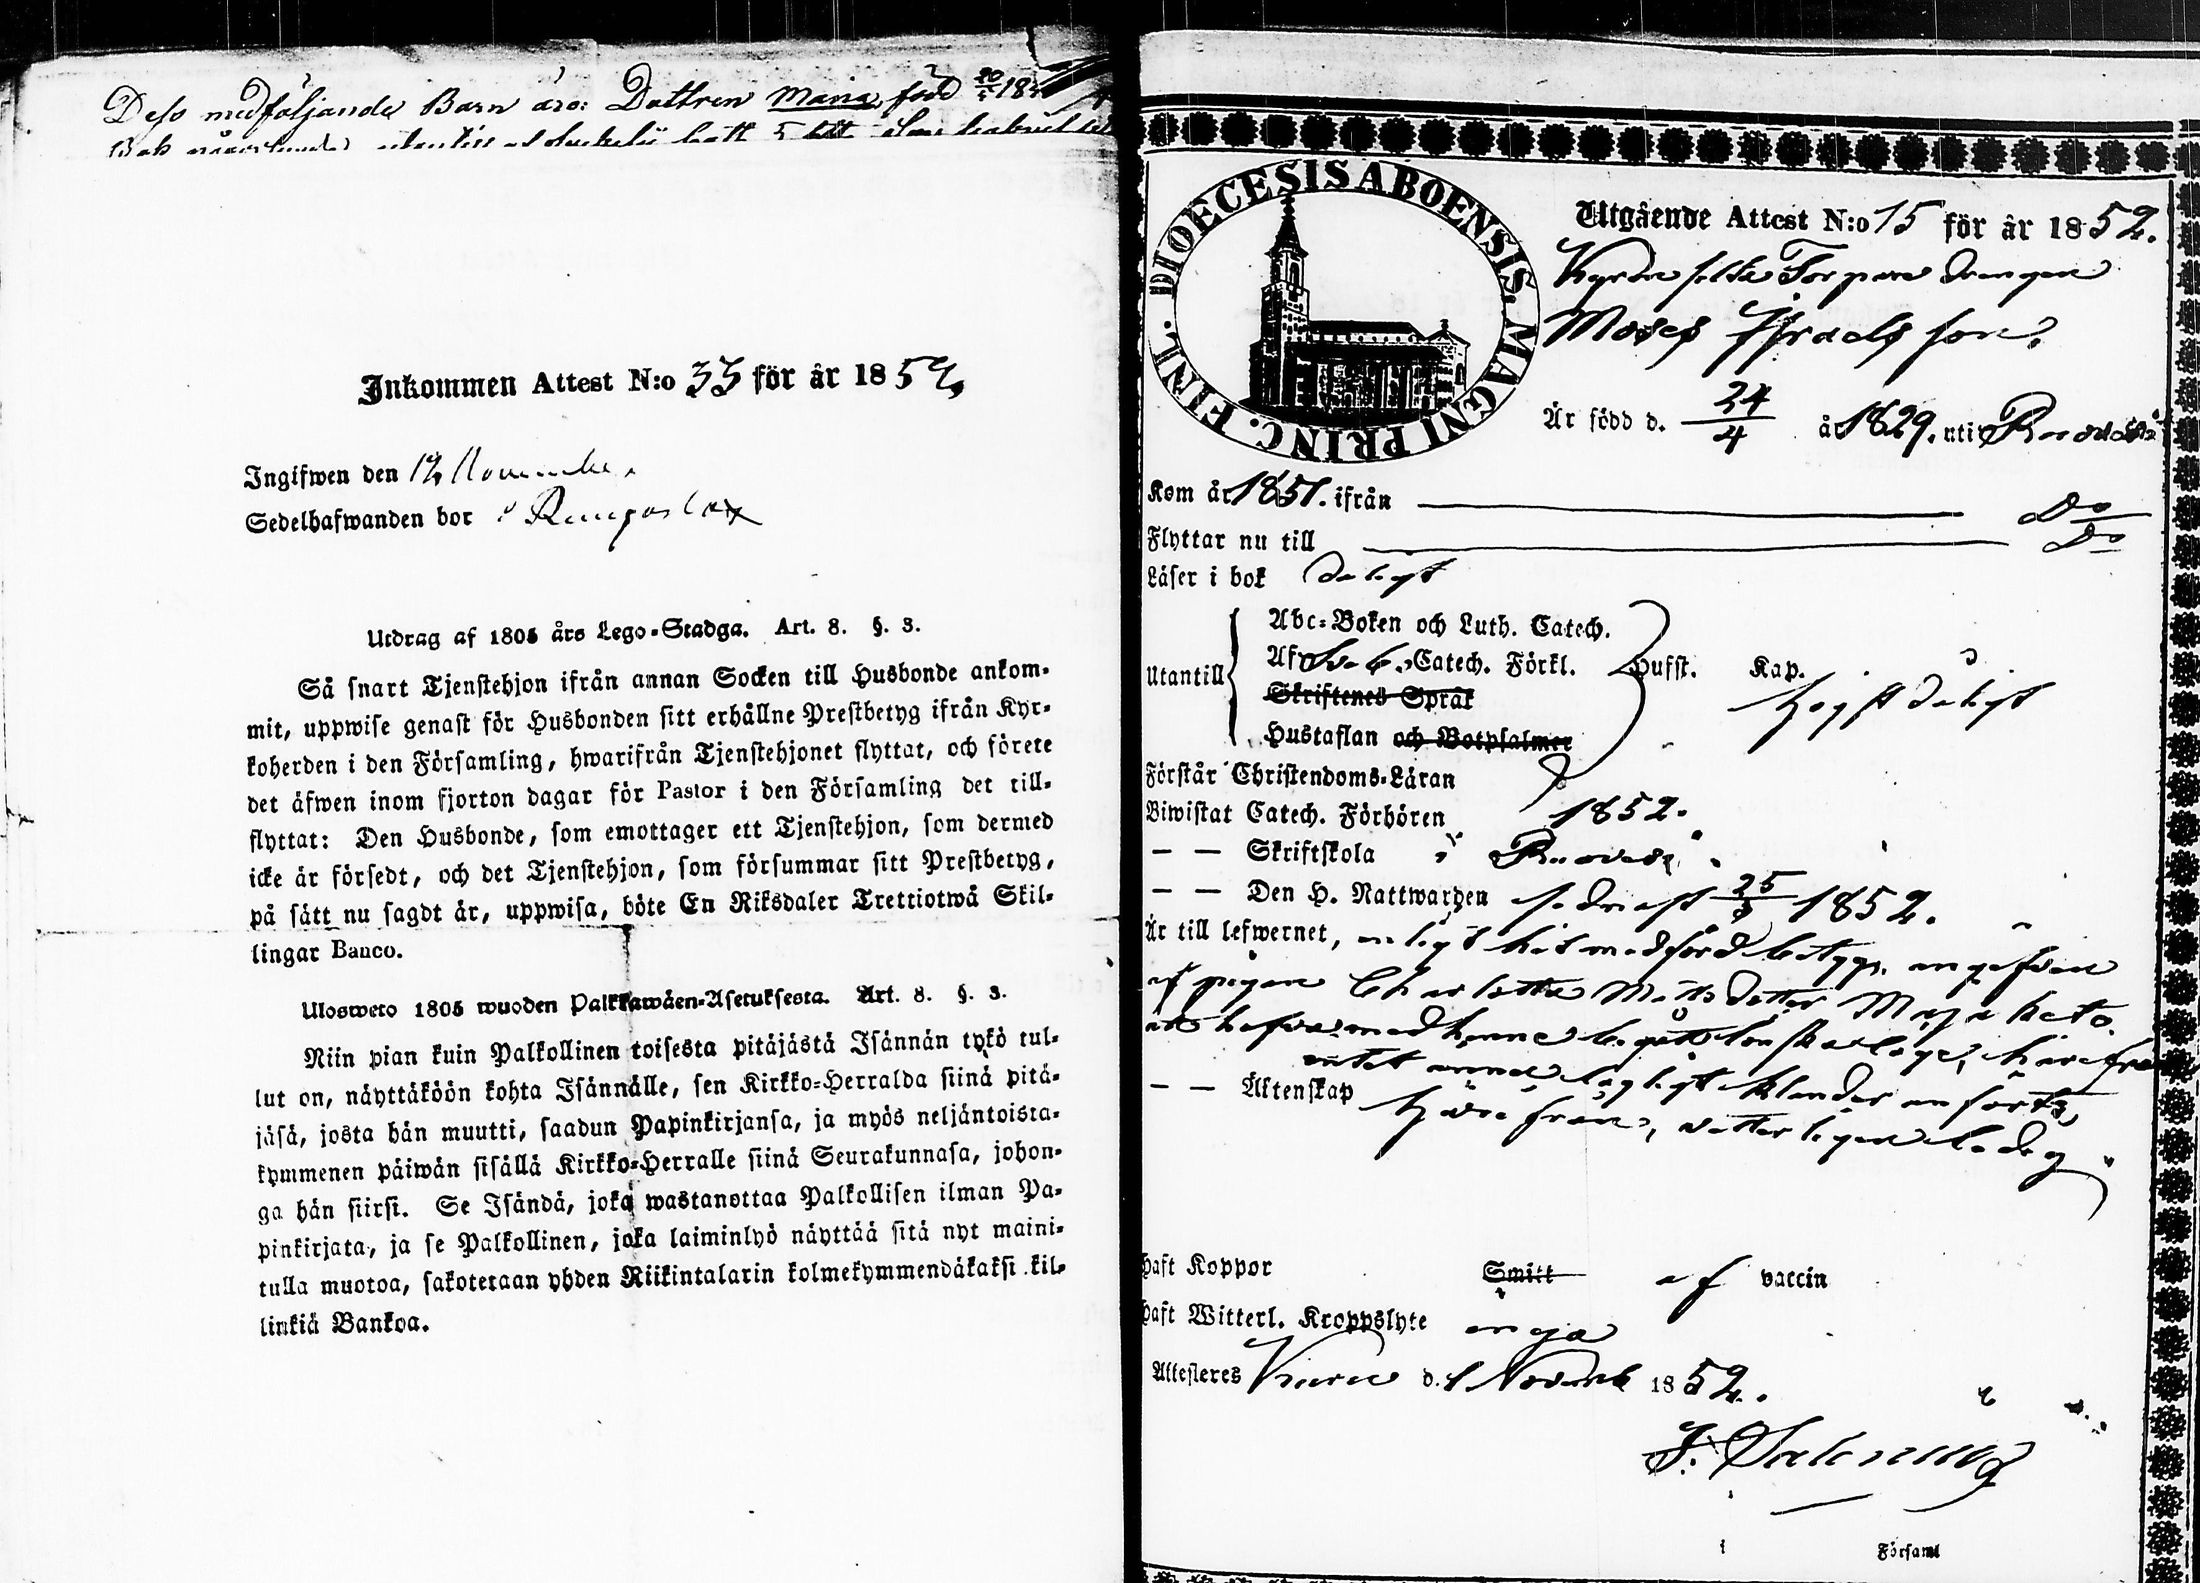 Dess medföljande Barn äro: Dottren Maria född 20/4 18
Inkommen Attest N:o 33 för år 1852
Ingifwen den 12 November
Sedelhafwanden bor i
Utdrag af 1805 års Lego-Stadga. Art. 8. §. 3.
Så snart Tjenstehjon ifrån annan Socken till Husbonde ankom-
mit, uppwise genast för Husbonden sitt erhållne Prestbetyg ifrån Kyr-
koherden i den Församling, hwarifrån Tjenstehjonet flyttat, och förete
det äfwen inom fjorton dagar för Pastor i den Församling det till-
flyttat: Den Husbonde, som emottager ett Tjenstehjon, som dermed
icke är försedt, och det Tjenstehjon, som försummar sitt Prestbetyg,
på sätt nu sagdt är, uppwisa, böte En Riksdaler Trettiotwå Skil-
lingar Banco.
Ulosweto 1805 wuoden Palkkawäen-Asetuksesta. Art. 8. §. 3.
Niin pian kuin Palkollinen toisesta pitäjästä Isännän tykö tul-
lut on, näyttäköön kohta Isännälle, sen Kirkko-Herralda siinä pitä-
jäsä, josta hän muutti, saadun Papinkirjansa, ja myös neljäntoista-
kymmenen päiwän sisällä Kirkko-Herralle siinä Seurakunnasa, johon-
ga hän siirsi. Se Isändä, joka wastanottaa Palkollisen ilman Pa-
pinkirjata, ja se Palkollinen, joka laiminlyö näyttää sitä nyt maini-
tulla muotoa, sakotetaan yhden Riikintalarin kolmekymmendäkaksi kil-
linkiä Bankoa.
DIOECESIS ABOENSIS. MAGNI PRINC. FINL.
Utgående Attest N:o 15 för år 1852.
Torpare drengen
Moses Isracls son.
Är född d. 24/4 år 1829. uti Ruovesi
Kom år 1851. ifrån Do
Flyttar nu till Do
Läser i bok dåligt
Abc-Boken och Luth. Catech.
Utantill Af Sveb. Catech. Förkl. Hufst. Kap.
Skriftenes Språk högst dåligt
Hustaflan och Botpsalmer
Förstår Christendoms-Läran
Biwistat Catech. Förhören 1852.
— — Skriftskola i Ruovesi
— — Den H. Nattwarden sednast 25/3 1852.
Är till lefwernet, enligt hit medförd betyg, angifven
af pigan Charlotta Matts dotter
att hafva med henne begått lönskaläge, härifrån
intet annat lagligt klander anfördt,
— — Äktenskap härifrån, vetterligen ledig
Haft Koppor Smitt af vaccin
Haft Witterl. Kroppslyte inga
Attesteras d. 1 Novemb 1852.
Församl